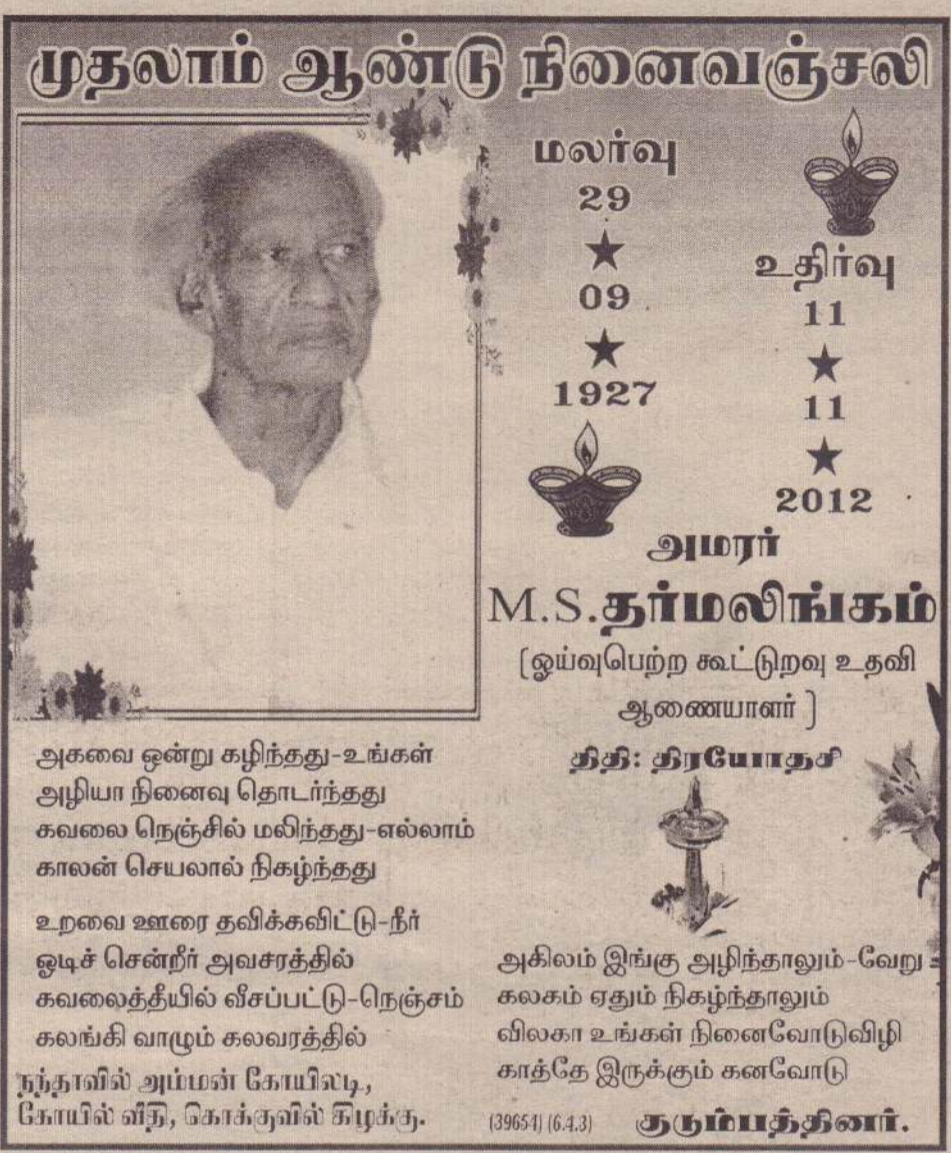 முதலாம் ஆண்டு நினைவஞ்சலி
மலர்வு
29
09
1927
உதிர்வு
11
11
2012
அமரர்
M.S.தர்மலிங்கம்
(ஓய்வுபெற்ற கூட்டுறவு உதவி
ஆணையாளர் )
திதி: திரயோதசி
அகவை ஒன்று கழிந்தது-உங்கள்
அழியா நினைவு தொடர்ந்தது
கவலை நெஞ்சில் மலிந்தது-எல்லாம்
காலன் செயலால் நிகழ்ந்தது
உறவை ஊரை தவிக்கவிட்டு-நீர்
ஓடிச் சென்றீர் அவசரத்தில்
கவலைத்தீயில் வீசப்பட்டு-நெஞ்சம்
கலங்கி வாழும் கலவரத்தில்
அகிலம் இங்கு அழிந்தாலும்-வேறு
கலகம் ஏதும் நிகழ்ந்தாலும்
விலகா உங்கள் நினைவோடுவிழி
காத்தே இருக்கும் கனவோடு
நந்தாவில் அம்மன் கோயிலடி,
கோயில் வீதி, கொக்குவில் கிழக்கு.
(39654) (6.4.3) குடும்பத்தினர்.